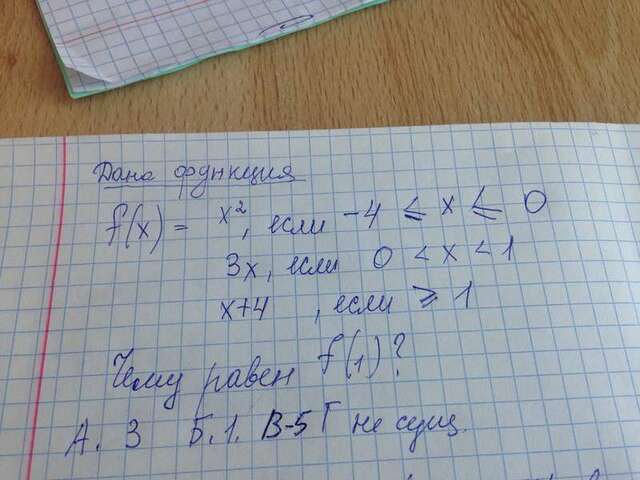 Дана функция
f(x) = x², если -4 ≤ x ≤ 0
3x, если 0 < x < 1
x+4, если ≥ 1
Чему равен f(1)?
А. 3 Б. 1. В-5 Г не сущ.